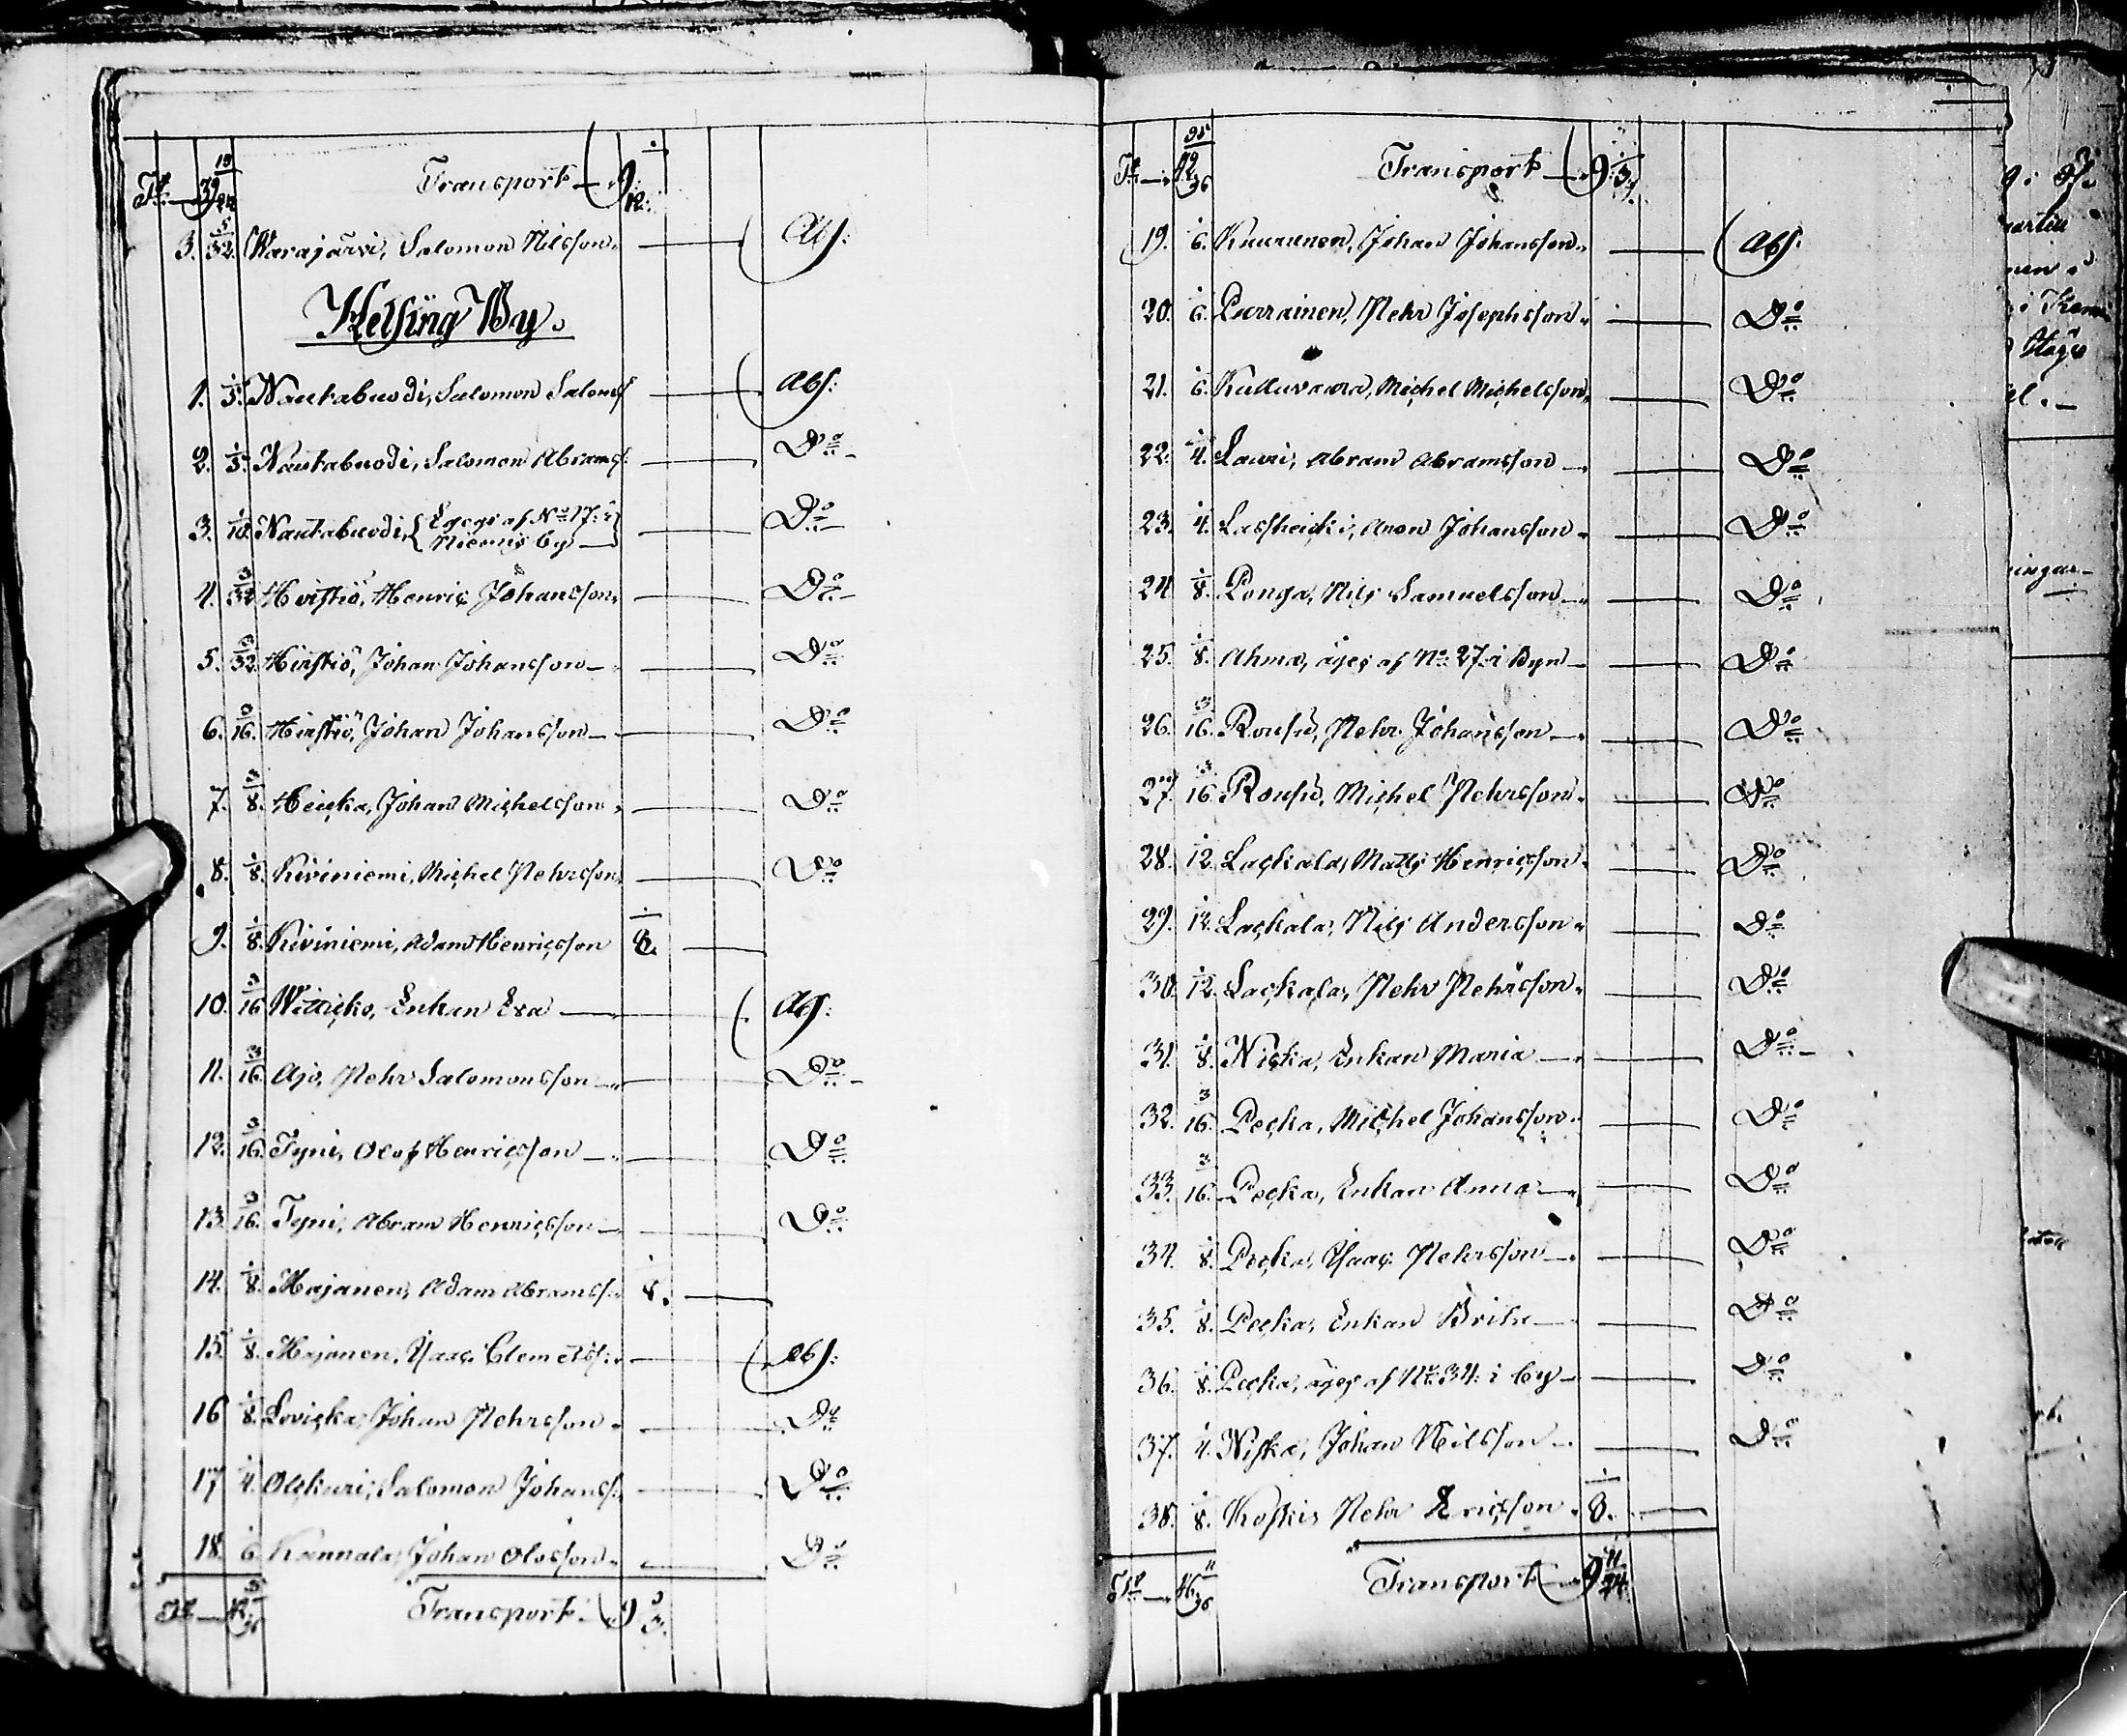 Transport 9 1/12.
3. 5/32. Warajärvi, Salomon Nilsson. Abs:
Helsing By.
1. 1/5. Nautabuodi, Salomon Saloms Abs:
2. 1/5. Nautabuodi, Salomon Abrams: Do
3. 1/10. Nautabuodi, { Eges af No 17: i Niemis by } Do
4. 3/32 Hirstiö, Henric Johansson. Do
5. 3/32 Hirstiö, Johan Johansson Do
6. 3/16. Hirstiö, Johan Johansson Do
7. 3/8. Heicka, Johan Michelsson. Do
8. 1/8. Kiviniemi, Michel Pehrsson. Do
9. 1/8. Kiviniemi, Adam Henricsson 1/8.
10. 3/16 Witticko, Enkan Eva Abs:
11. 3/16. Ajo, Pehr Salomonsson Do
12. 3/16. Tyni, Olof Henricsson Do
13. 3/16. Tyni, Abram Henricsson Do
14. 1/8. Majanen, Adam Abramss: 1/8.
15. 1/8. Majanen, Isaac Clemetss: Abs:
16 1/8. Lovicka, Johan Pehrsson. Do
17 1/4. Olckuri, Salomon Johanss: Do
18. 1/6. Kannala, Johan Olofsson. Do
Transport. 9
Transport 9
19. 1/6. Kuurunen, Johan Johansson. Abs:
20. 1/6. Purrainen, Pehr Josephsson. Do
21. 1/6. Kulluvaara, Michel Michelsson, Do
22. 1/4. Lauri, Abram Abramsson Do
23. 1/4. Lassheicki, Aron Johansson Do
24 1/8. Ponga, Nils Samuelsson Do
25. 1/8. Ahma, äges af No 27. i Byn Do
26. 3/16. Rousu, Pehr Johansson Do
27 3/16 Rousu, Michel Pehrsson. Do
28. 1/12. Lackala, Matts Henricsson. Do
29. 1/12. Lackala, Nils Andersson. Do
30. 1/12. Lackala, Pehr Pehrsson. Do
31. 1/8. Nicka, Enkan Maria Do
32. 3/16. Pecka, Michel Johansson. Do
33. 3/16. Pecka, Enkan Anna Do
34. 1/8. Pecka, Isaac Pehrsson Do
35. 1/8. Pecka, Enkan Brita Do
36. 1/8. Pecka, äges af No 34: i by Do
37. 1/4. Niska, Johan Nilsson Do
38. 1/8. Koskis Pehr Ericsson. 1/8.
Transport 9 11/24.